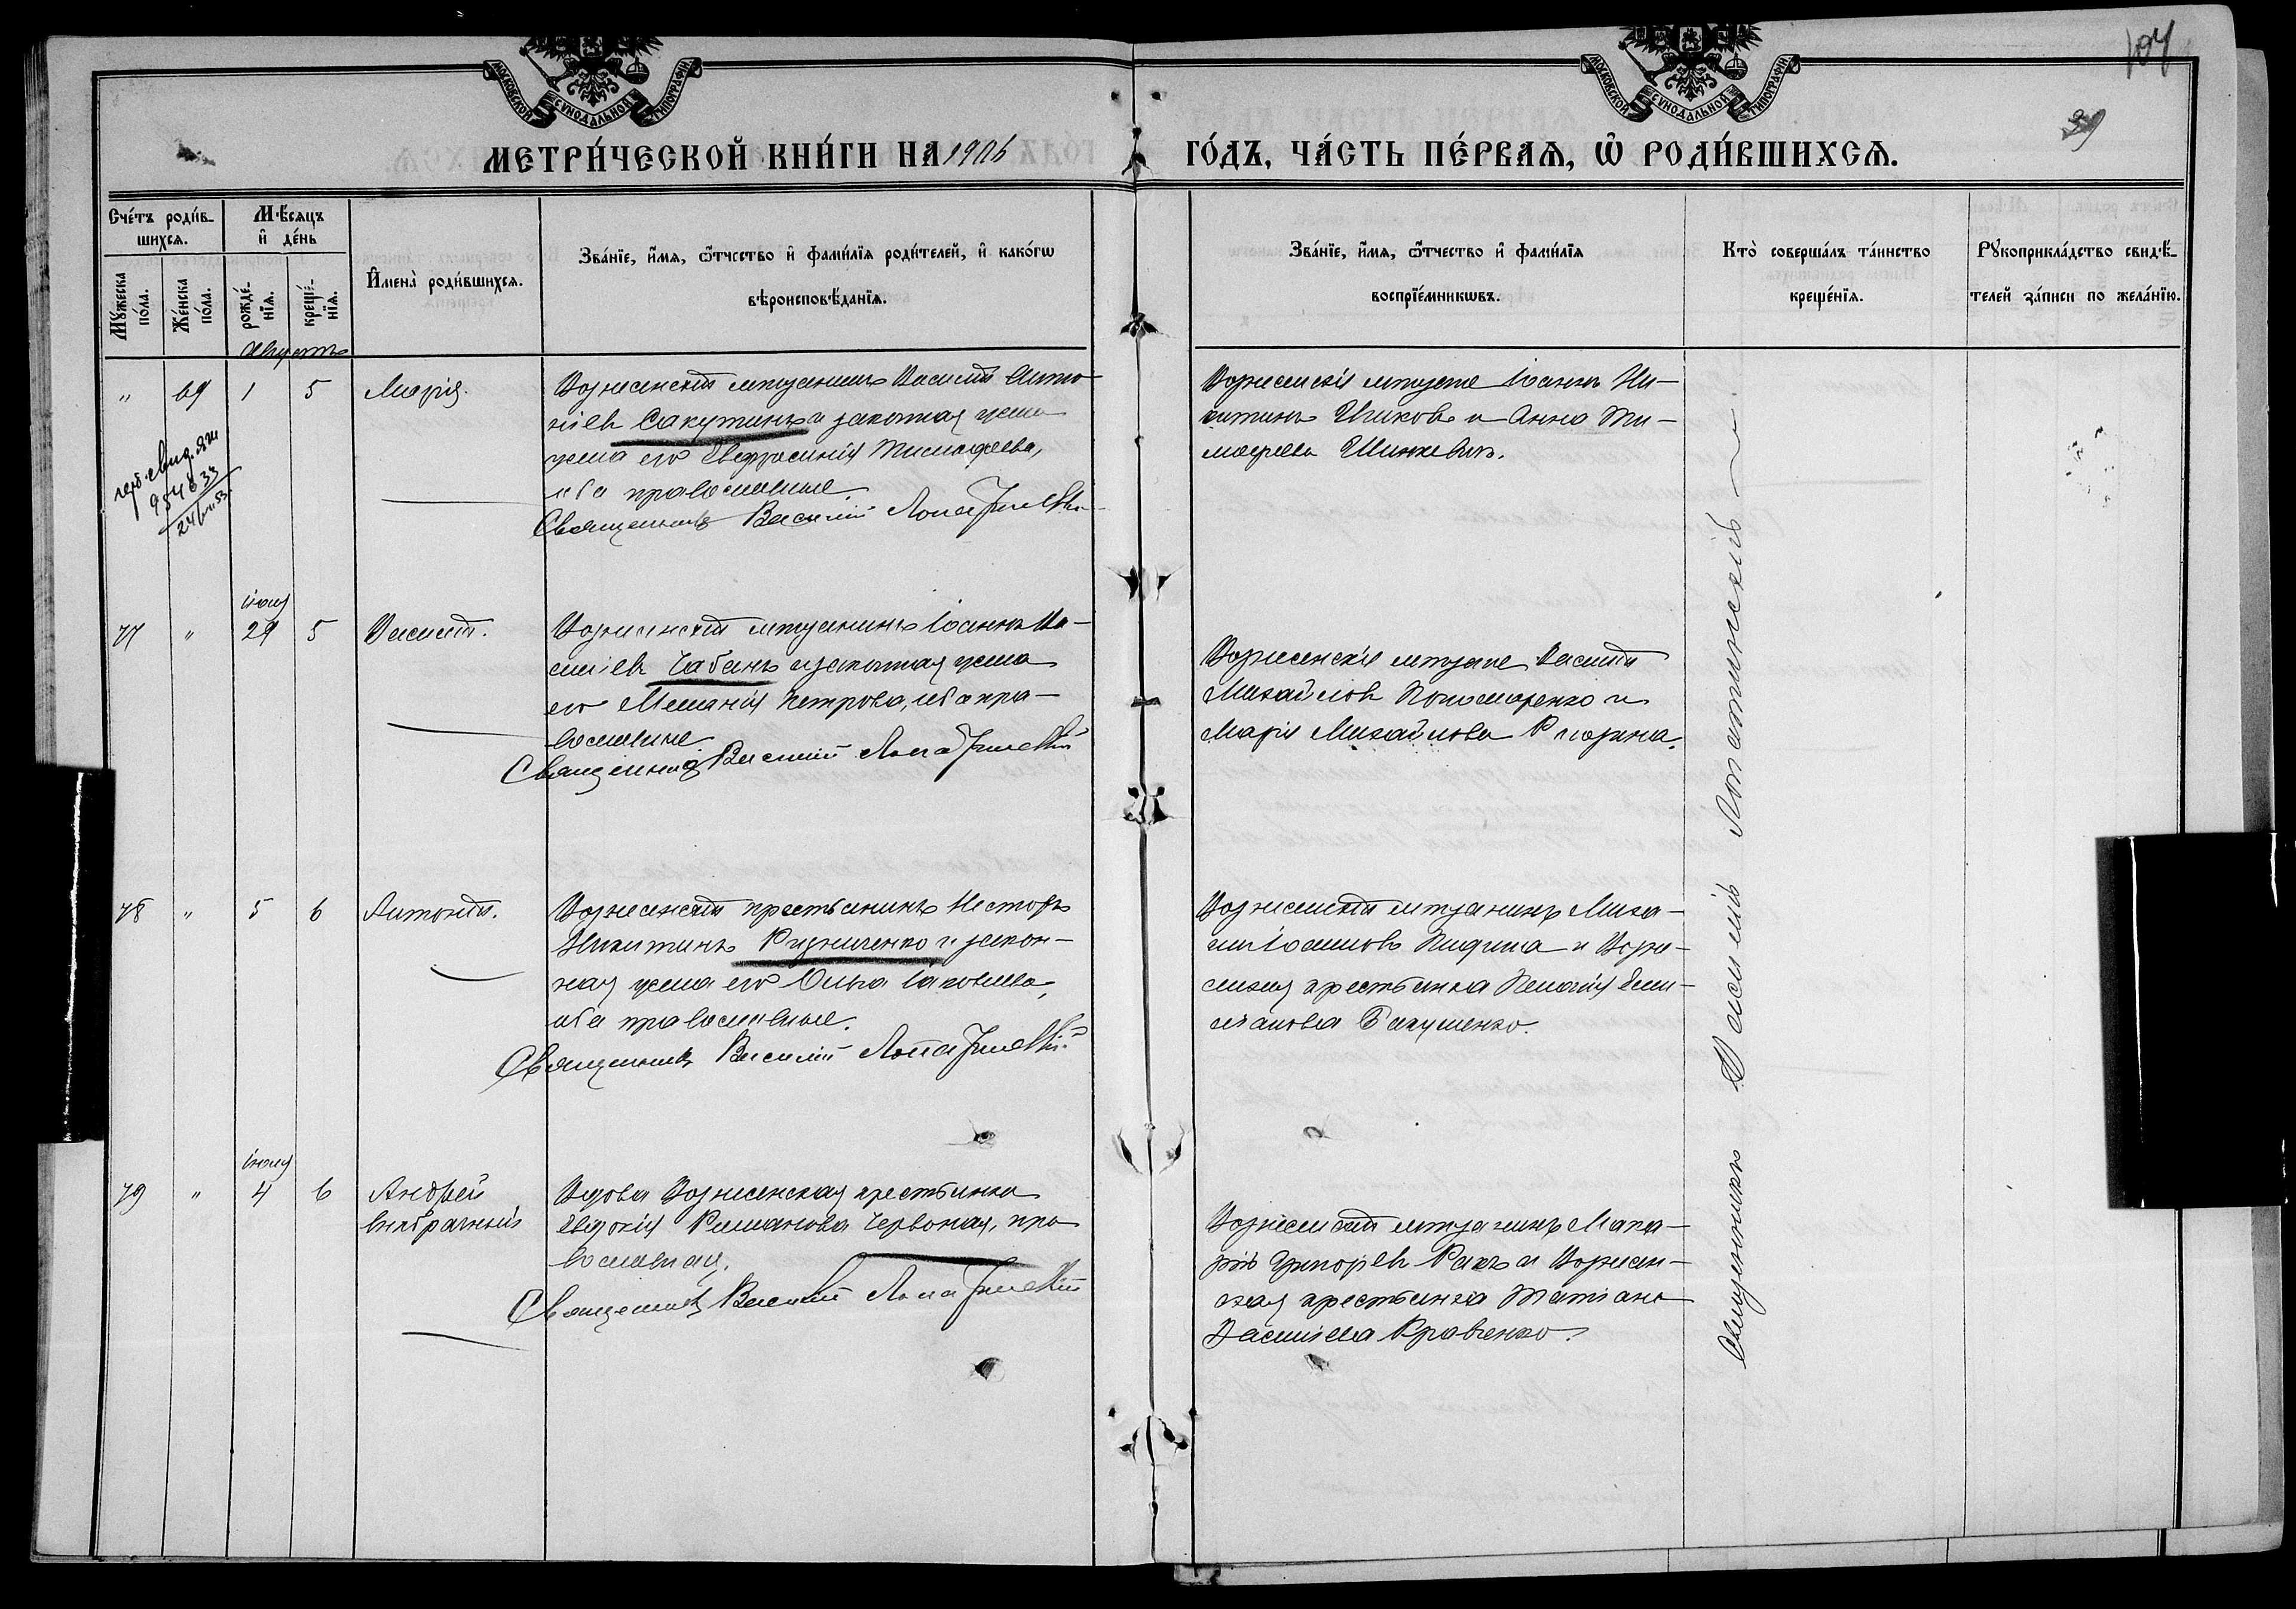 МОСКОВСКОЙ СѴНОДАЛЬНОЙ ТИПОГРАФИИ
МОСКОВСКОЙ СѴНОДАЛЬНОЙ ТИПОГРАФИИ
104
39
МЕТРИ́ЧЕСКОЙ КНИ́ГИ НА 1906 ГО́ДЪ, ЧА́СТЬ ПЕ́РВАѦ, Ѡ҆ РОДИ́ВШИХСѦ.
Счётъ роди́в-
шихсѧ.
Мѣ́сѧцъ
и҆ де́нь
Мꙋ́жеска по́ла.
Же́нска по́ла.
рожде́-
нїѧ.
креще́-
нїѧ.
И҆мена̀ роди́вшихсѧ.
Зва́нїе, и҆́мѧ, ѻ҆́тчество и҆ фами́лїѧ роди́телей, и҆ како́гѡ
вѣроисповѣ́данїѧ.
Зва́нїе, и҆́мѧ, ѻ҆́тчество и҆ фами́лїѧ
воспрїе́мникѡвъ.
Кто̀ соверша́лъ та́инство
креще́нїѧ.
Рꙋкоприкла́дство свидѣ́-
телей за́писи по жела́нїю.
Августъ
" 69 1 5 Марія.
Вознесенскій мѣщанинъ Василій Анто-
ніевъ Сакутинъ и законная жена
жена его Евфросинія Тимофеева,
оба православные.
Священникъ Василій Лопатинскій
Вознесенскіе мѣщане Іоаннъ Ни-
китинъ и Анна Ти-
мофеева Шинкевичъ.
954833
24/VII 53
іюля
77 " 29 5 Василій.
Вознесенскій мѣщанинъ Іоаннъ Ва-
сильевъ Чабанъ и законная жена
его Меланія Петрова, оба пра-
вославные
Священникъ Василій Лопатинскій
Вознесенскіе мѣщане Василій
Михайловъ Пономаренко и
Марія Михайлова
78 " 5 6 Антоній.
Вознесенскій крестьянинъ Несторъ
Никитинъ Ризниченко и закон-
ная жена его Ольга Іаковлева,
оба православные.
Священникъ Василій Лопатинскій
Вознесенскій мѣщанинъ Миха-
илъ Іоанновъ и Возне-
сенская крестьянка Пелагія
Бакуменко.
іюля
79 " 4 6 Андрей
внѣбрачный
Вдова Вознесенская крестьянка
Евдокія Романова Червоная, пра-
вославная.
Священникъ Василій Лопатинскій
Вознесенскій мѣщанинъ Мака-
рій Григорьевъ Ракъ и Вознесен-
ская крестьянка Татіана
Васильева Кравченко.
Священникъ Василій Лопатинскій